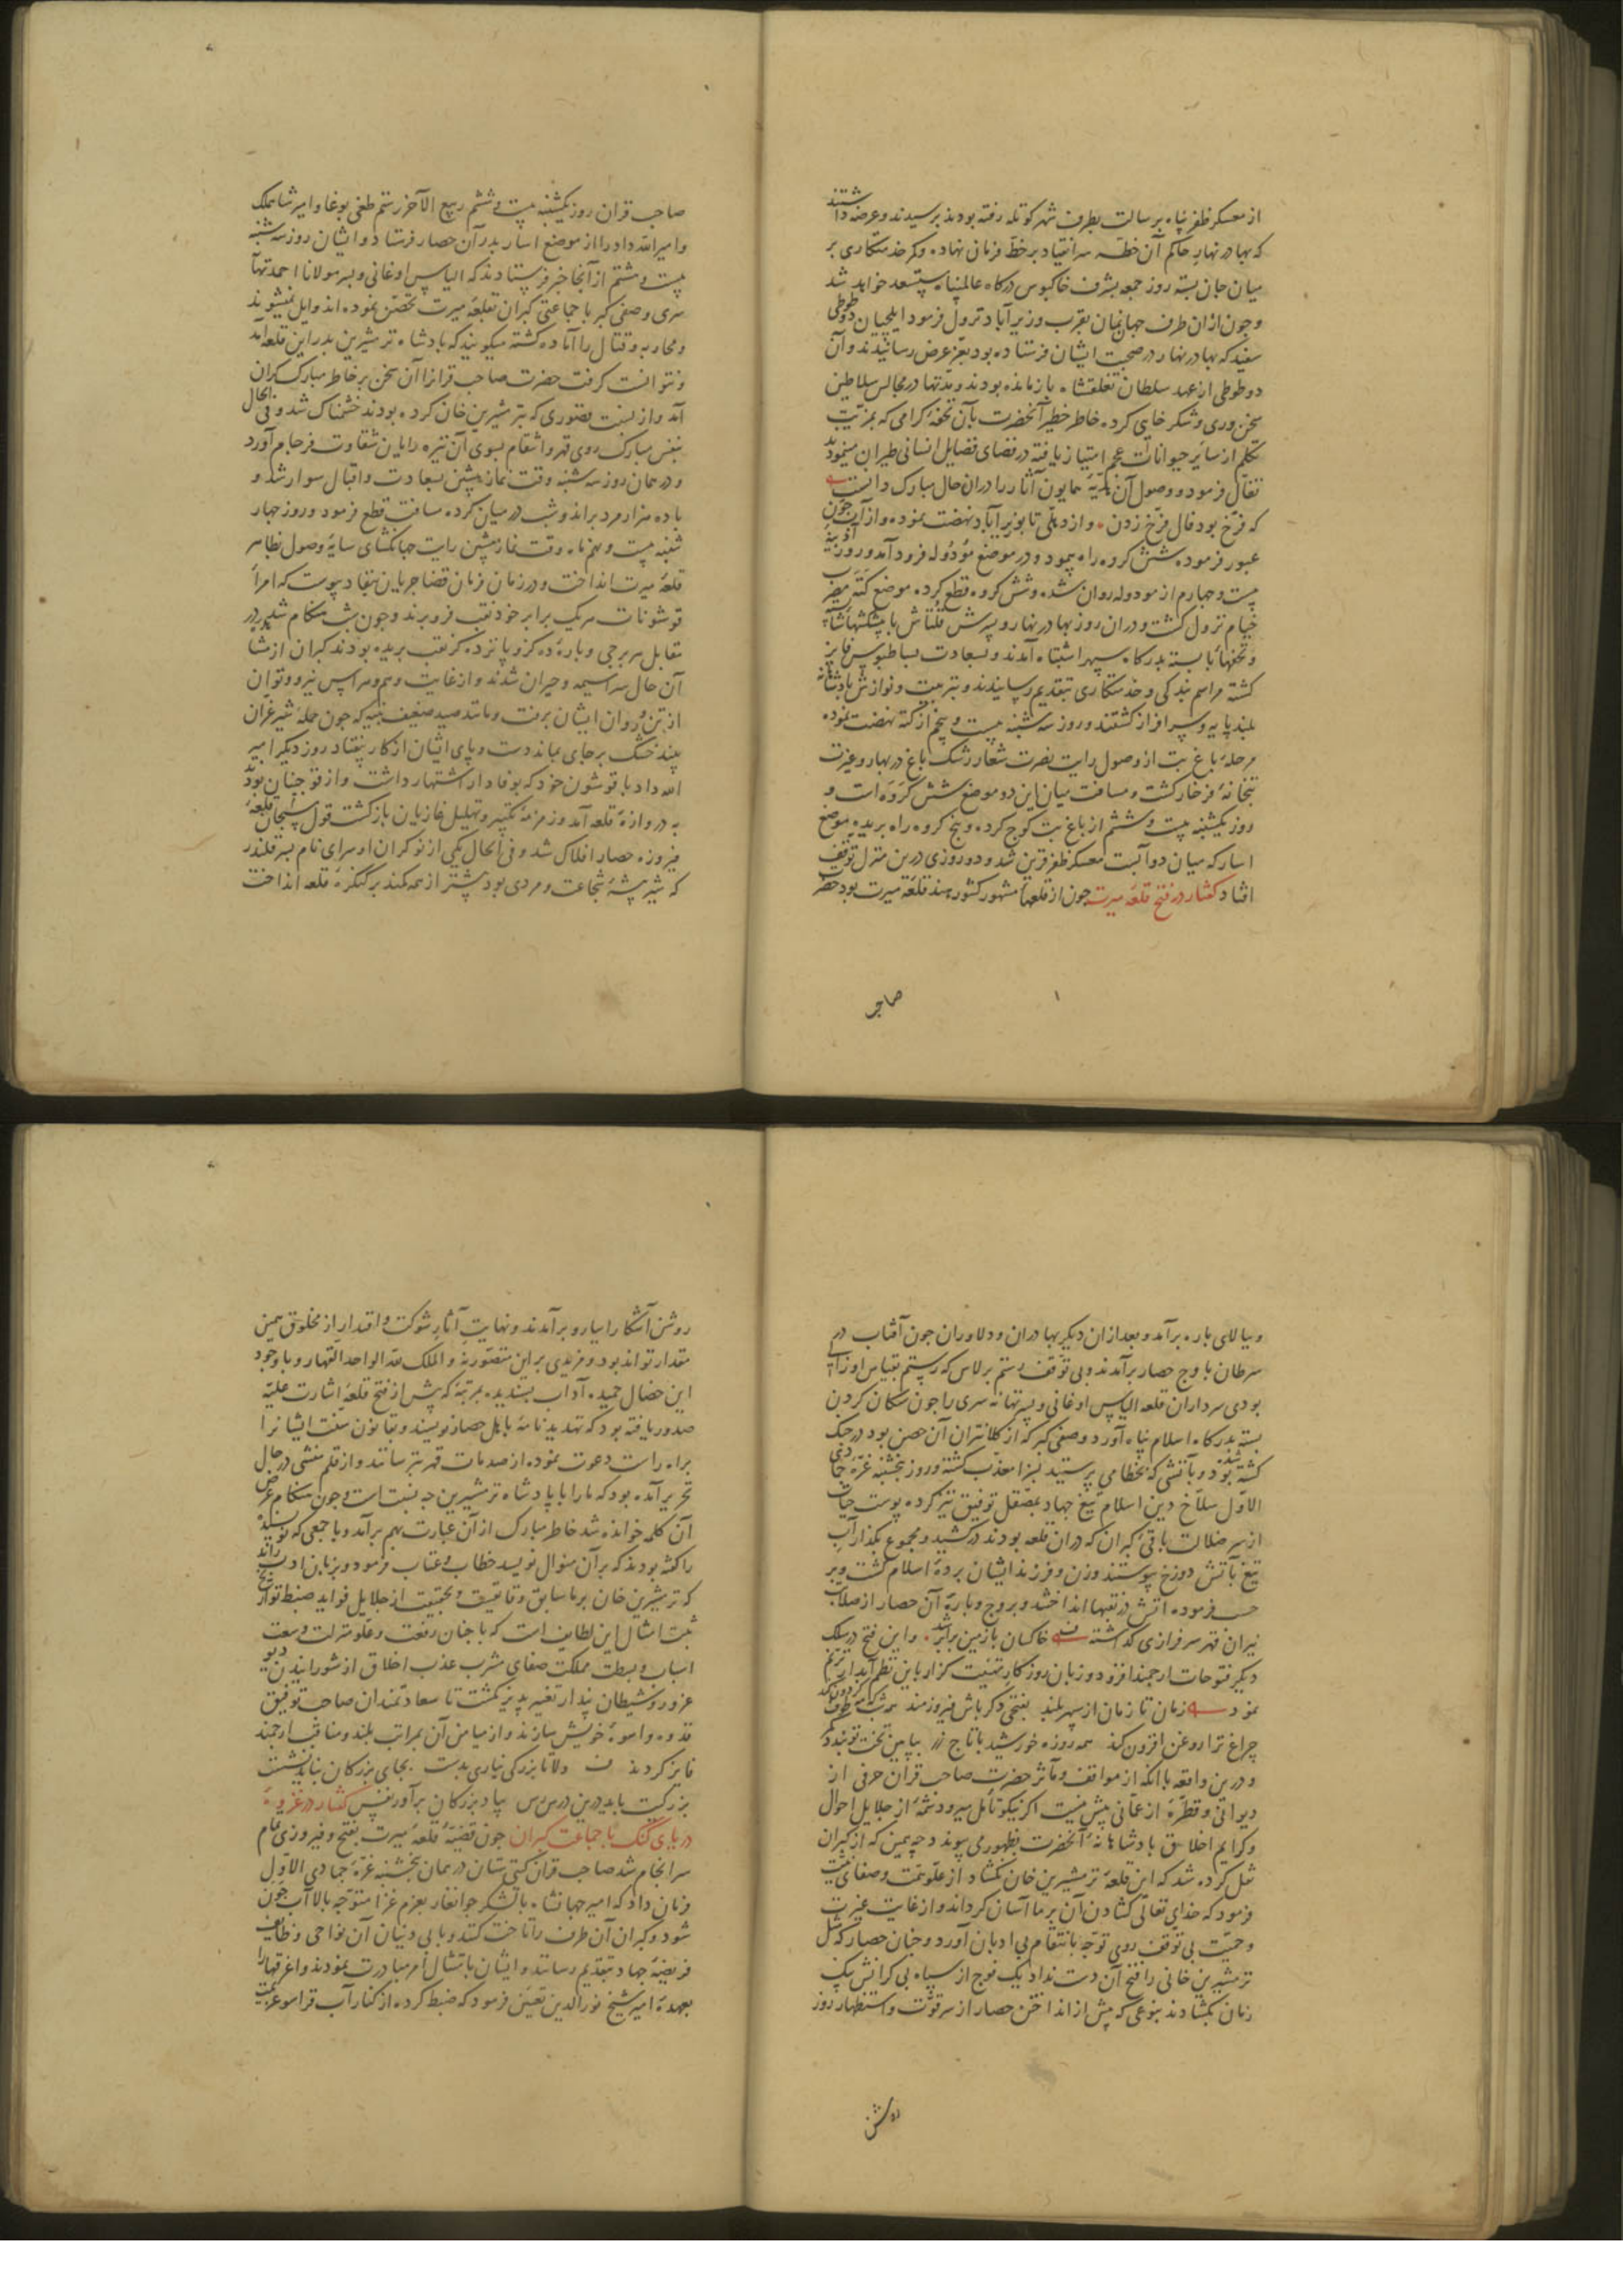 از معسکر ظفر پناه برسالت بطرف شهر کوتله رفته بودند برسیدند و عرضه داشتند
که بهادر نهار حاکم آن خطه سر انقیاد بر خط فرمان نهاده و کمر خدمتکاری بر
میان جان بسته روز جمعه بشرف خاکبوس درکاه عالمپناه مستسعد خواهد شد
و چون ازان طرف جهان نمان بقرب وزیرآباد نزول فرمود ایلچیان دو طوطی
سفید که بهادر نهار در صحبت ایشان فرستاده بود بعز عرض رسانیدند و آن
دو طوطی از عهد سلطان تغلقشاه بازمانده بودند و مدتها در مجالس سلاطین
سخن وری و شکر خایی کرده خاطر خطیر آنحضرت بآن تحفهٔ کرامی که بمزیت
تکلم از سایر حیوانات عجم امتیاز یافته در فضای فضایل انسانی طیران مینمود
تفأل فرمود و وصول آن هدیهٔ همایون آثار را دران حال مبارک دانست
که فرخ بود فال فرخ زدن و از دهلی تا بوزیرآباد نهضت نموده و از آب جون
عبور فرموده شش کروه راه بپیمود و در موضع مودوله فرود آمد و روز آدینه
بیست و چهارم از مودوله روان شده و شش کروه قطع کرده موضع کته مضرب
خیام نزول کشت و دران روز بهادر نهار و پسرش قلتاش با پیشکشهاء شایسته
و تحفهاء بایسته بدرکاه سپهر اشتباه آمدند و بسعادت بساط بوس فایز
کشته مراسم بندکی و خدمتکاری بتقدیم رسانیدند و بتربیت و نوازش پادشاهانه
بلندپایه و سرافراز کشتند و روز سه شنبه بیست و پنجم از کته نهضت نموده
مرحلهٔ باغ بت از وصول رایت نصرت شعار رشک باغ در بهار و غیرت
بتخانهٔ فرخار کشت و مسافت میان این دو موضع شش کروه است و
روز یکشنبه بیست و ششم از باغ بت کوچ کرده و پنج کروه راه بریده بموضع
اسار که میان دو آبست معسکر ظفر قرین شد و دو روزی درین منزل توقف
افتاد کفتار در فتح قلعهٔ میرت چون از قلعهاء مشهور کشور هند قلعهٔ میرت بود حضرت
صاحب
صاحب قران روز یکشنبه بیست و ششم ربیع الآخر رستم طغی بوغا و امیر شاهملک
و امیر الله داد را از موضع اسار بدر آن حصار فرستاد و ایشان روز سه شنبه
بیست و هشتم از آنجا خبر فرستادند که الیاس اوغانی و پسر مولانا احمد تهانیسری
سری و صفی کبر با جماعتی کبران بقلعهٔ میرت تحصن نموده اند و ایل نمیشوند
و محاربه و قتال را آماده کشته میکویند که پادشاه ترمشیرین بدر این قلعه آمد
و نتوانست کرفت حضرت صاحب قرانرا آن سخن بر خاطر مبارک کران
آمد و از نسبت قصوری که بترمشیرین خان کرده بودند خشمناک شد و فی الحال
بنفس مبارک روی قهر و انتقام بسوی آن تیره رایان شقاوت فرجام آورد
و در همان روز سه شنبه وقت نماز پیشین بسعادت و اقبال سوار شد و
با ده هزار مرد براند و شب در میان کرده مسافت قطع فرمود و روز چهار
شنبه بیست و نهم ماه وقت نماز پیشین رایت جهانکشای سایهٔ وصول بظاهر
قلعهٔ میرت انداخت و در زمان فرمان قضا جریان بنفاد پیوست که امراء
قوشونات هریک برابر خود نقب فرو برند و چون شب هنکام شد در
مقابل هر برجی و بارهٔ ده کز و پانزده کز نقب بریده بودند کبران از مشاهدهٔ
آن حال سراسیمه و حیران شدند و از غایت وهم و هراس نیرو و توان
از تن و روان ایشان برفت و مانند صید ضعیف بنیه که چون حملهٔ شیر غران
بیند خشک بر جای بماند دست و پای ایشان از کار بیفتاد روز دیکر امیر
الله داد با قوشون خود که بوفادار اشتهار داشت و از قوچینان بود
به دروازهٔ قلعه آمد و زمزمهٔ تکبیر و تهلیل غازیان بازکشت قول سنجان قلعهٔ
فیروزه حصار افلاک شد و فی الحال یکی از نوکران او سرای نام پسر قلندر
که شیر بیشهٔ شجاعت و مردی بود پیشتر از همه کمند بر کنکرهٔ قلعه انداخت
و ببالای باره برآمد و بعد ازان دیکر بهادران و دلاوران چون آفتاب در
سرطان باوج حصار برآمدند و بی توقف رستم برلاس که رستم بقیاس او زالی
بودی سرداران قلعه الیاس اوغانی و پسر تهانه سری را چون سکان کردن
بسته بدرکاه اسلام پناه آورد و صفی کبر که از کلانتران آن حصن بود در جنک
کشته شد بود و بآتشی که بخطا می پرستید بسزا معذب کشته و روز پنجشنبه غرهٔ جمادی
الاول سلاخ دین اسلام تیغ جهاد بمصقل توفیق تیز کرده پوست حیات
از سر ضلالت باقی کبران که دران قلعه بودند درکشید و مجموع بکذار آب
تیغ بآتش دوزخ پیوستند و زن و فرزند ایشان بردهٔ اسلام کشت و بر
حسب فرموده آتش در نقبها انداختند و بروج و بارهٔ آن حصار از صلابت
نیران قهر سرفرازی کذاشته خاکسان با زمین برابر شد و این فتح در سلک
دیکر فتوحات ارجمند افزود و زبان روزکار تهنیت کزار باین نظم آبدار ترنم
نمود زمان تا زمان از سپهر بلند بفتحی دکر باش فیروزمند
چراغ ترا روغن افزون کند همه روزه خورشید با تاج زر بپایین تخت تو بندد کمر
و درین واقعه با آنکه از مواقف و مآثر حضرت صاحب قران حرفی از
دیوانی و قطرهٔ از عمانی بیش نیست اکر نیکو تأمل میرود شمهٔ از جلایل احوال
و کرایم اخلاق پادشاهانهٔ آنحضرت بظهور می پیوندد چه بمین که از کبران
نقل کرده شد که این قلعه ترمشیرین خان نکشاد از علو همت و صفای نیت
فرمود که خدای تعالی کشادن آن بر ما آسان کرداند و از غایت غیرت
و حمیت بی توقف روی توجه بانتقام بی ادبان آورد و چنان حصار که مثل
ترمشیرین خانی را فتح آن دست نداد یک فوج از سپاه بی کرانش بیک
زمان بکشادند بنوعی که پیش از انداختن حصار از سر قوت و استظهار روز
روشن
روشن آشکارا بباره برآمدند و نهایت آثار شوکت و اقتدار از مخلوق همین
مقدار تواند بود و مزیدی بر این متصور نه و الملک لله الواحد القهار و با وجود
این خصال حمیده آداب پسندیده بمرتبهٔ که پیش از فتح قلعه اشارت علیه
صدور یافته بود که تهدید نامهٔ باهل حصار نویسند و بقانون سنت ایشانرا
براه راست دعوت نموده از صدمات قهر بترسانند و از قلم منشی در حال
تحریر آمده بود که ما را با پادشاه ترمشیرین چه نسبت است و چون هنکام عرض
آن کلمه خوانده شد خاطر مبارک از آن عبارت بهم برآمد و با جمعی که نویسنده
را کفته بودند که بر آن منوال نویسد خطاب و عتاب فرمود و بزبان ادب راند
که ترمشیرین خان بر ما سابق و فایقست و بحقیقت از جلایل فواید ضبط تواریخ
ثبت امثال این لطایف است که با چنان رفعت و علو منزلت و وسعت
اسباب و بسطت مملکت صفای مشرب عذب اخلاق از شورانیدن دیو
غرور و شیطان پندار تغیر پذیر نکشت تا سعادتمندان صاحب توفیق
قدوه و اسوهٔ خویش سازند و از میامن آن بمراتب بلند و مناقب ارجمند
فایز کردند دلا تا بزرکی نیاری بدست بجای بزرکان نباید نشست
بزرکیت باید درین دسترس بیاد بزرکان برآور نفس کفتار در غزوهٔ
دریای کنک با جماعت کبران چون قضیهٔ قلعهٔ میرت بفتح و فیروزی تمام
سرانجام شد صاحب قران کیتی ستان در همان پنجشنبه غرهٔ جمادی الاول
فرمان داد که امیر جهانشاه با لشکر جوانغار بعزم غزا متوجه بالا آب جون
شود و کبران آن طرف را تاخت کنند و با بی دینان آن نواحی وظایف
فریضهٔ جهاد بتقدیم رسانند و ایشان بامتثال امر مبادرت نمودند و اغرقها را
بعهدهٔ امیر شیخ نورالدین تعیین فرمود که ضبط کرده از کنار آب قراسو عزیمت